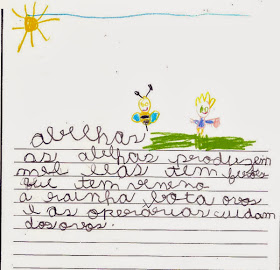 abelhas
as abelhas produzem
mel elas tem ferrão
que tem veneno
a rainha bota ovos
e as operárias cuidam
dos ovos.